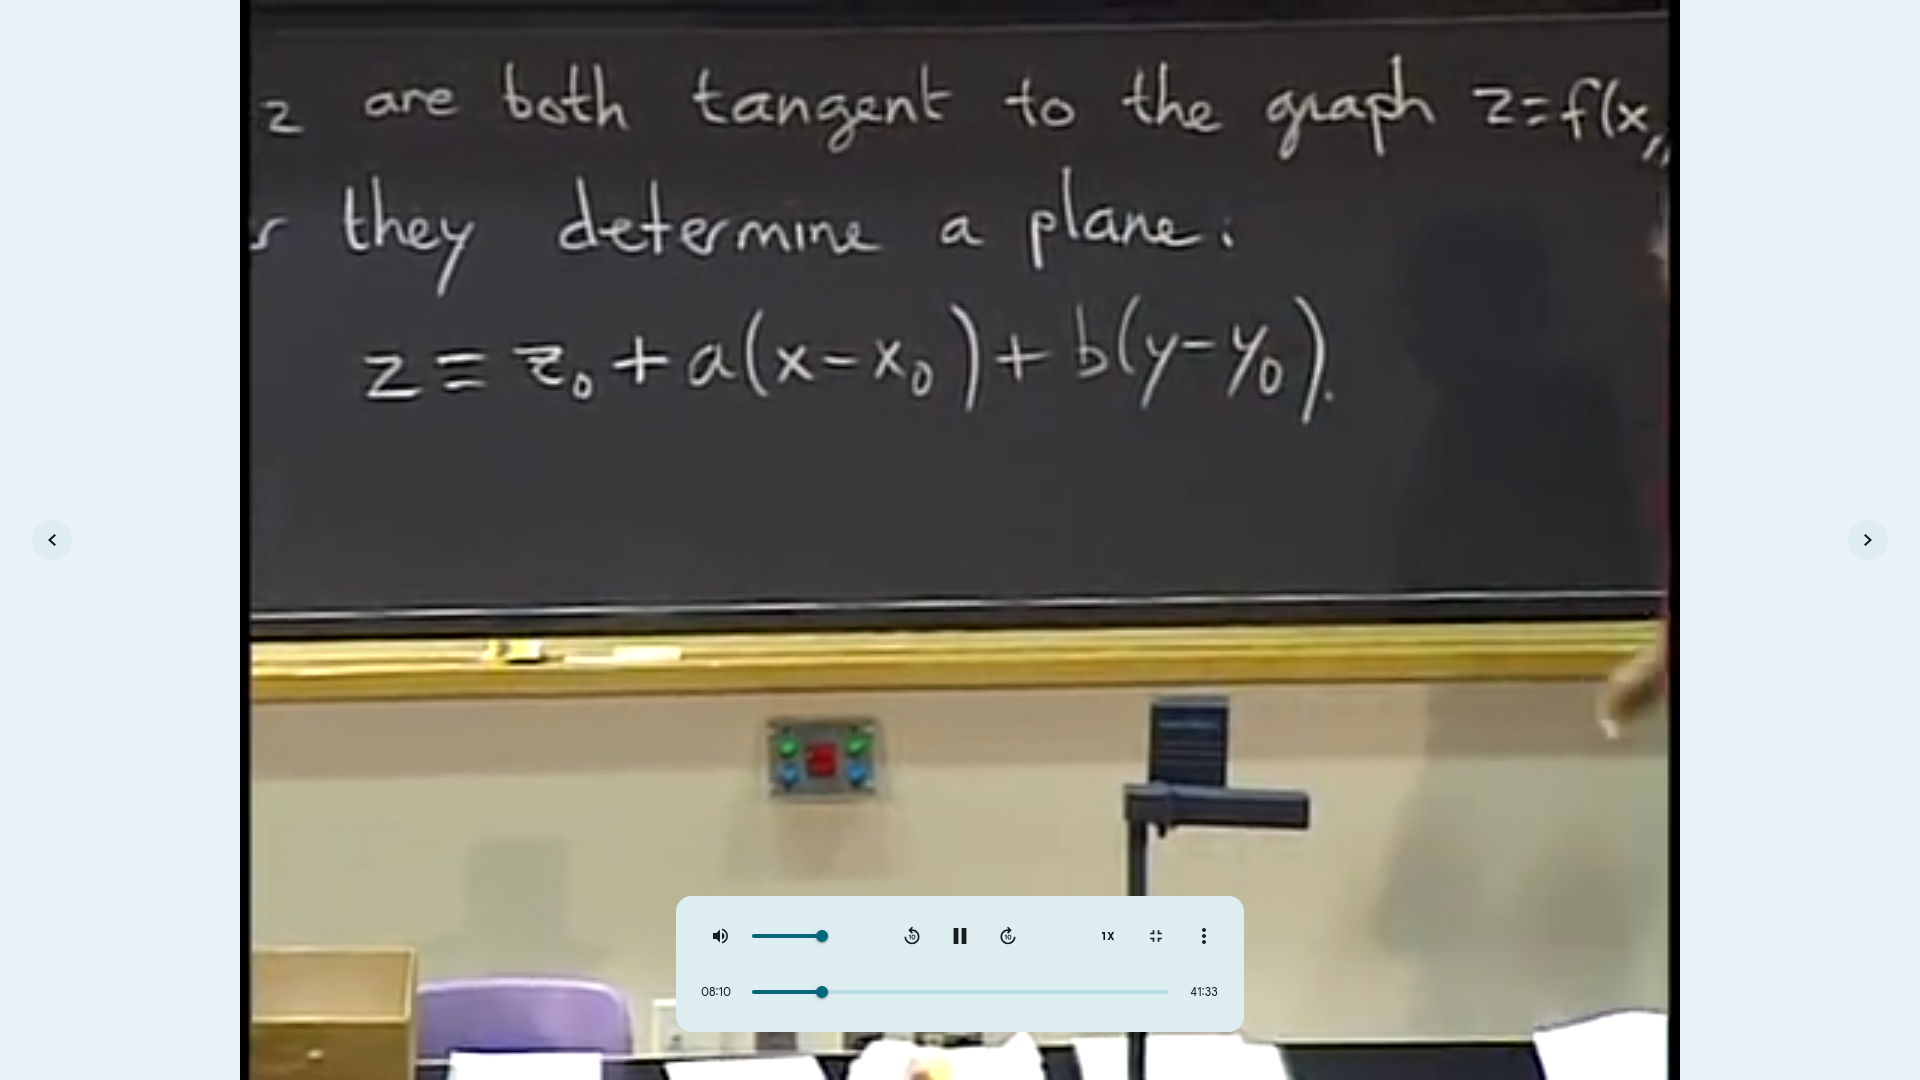 2 are both tangent to the graph z=f(x,
they determine a plane:
z = z₀ + a(x-x₀) + b(y-y₀).
1X
08:10
41:33